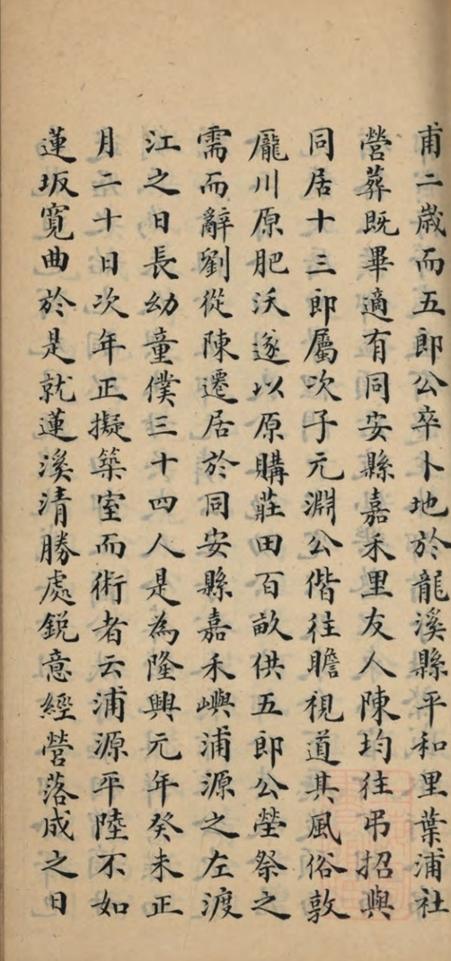 甫二歳而五郎公卒卜地於龍溪縣平和里葉浦社
營葬既畢適有同安縣嘉禾里友人陳均往弔招與
同居十三郎屬次子元淵公偕往瞻視道其風俗敦
龐川原肥沃遂以原購莊田百畝供五郎公塋祭之
需而辭劉從陳遷居於同安縣嘉禾嶼浦源之左渡
江之日長幼童僕三十四人是為隆興元年癸未正
月二十日次年正擬築室而術者云浦源平陸不如
蓮坂寬曲於是就蓮溪清勝處銳意經營落成之日